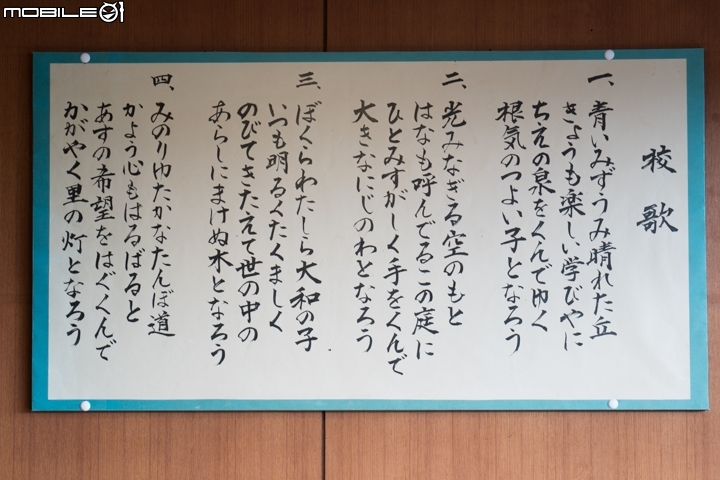 MOBILE01
校歌
一、青いみずうみ晴れた丘
きょうも楽しい学びやに
ちえの泉をくんでゆく
根気のつよい子となろう
二、光みなぎる空のもと
はなも呼んでるこの庭に
ひとみすがしく手をくんで
大きなにじのわとなろう
三、ぼくらわたしら大和の子
いつも明るくたくましく
のびてきたえて世の中の
あらしにまけぬ木となろう
四、みのりゆたかなたんぼ道
かよう心もはるばると
あすの希望をはぐくんで
かがやく里の灯となろう